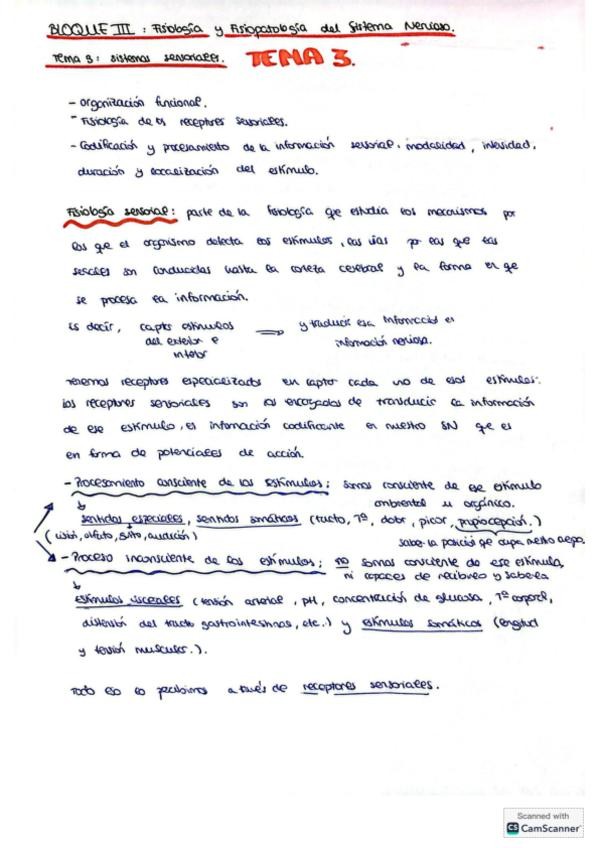 BLOQUE III : Fisiología y Fisiopatología del Sistema Nervioso.
Tema 3: sistemas sensoriales. TEMA 3.
- organización funcional.
- Fisiología de los receptores sensoriales.
- Codificación y procesamiento de la información sensorial: modalidad, intensidad,
duración y localización del estímulo.
Fisiología sensorial: parte de la fisiología que estudia los mecanismos por
los que el organismo detecta los estímulos, las vías por las que las
señales son conducidas hasta la corteza cerebral y la forma en qe
se procesa la información.
Es decir, capta estímulos ⟹ y traducir esa información en
del exterior e información nerviosa.
interior
Tenemos receptores especializados en captar cada uno de esos estímulos:
los receptores sensoriales son los encargados de transducir la información
de ese estímulo, es información codificante en nuestro SN que es
en forma de potenciales de acción.
- Procesamiento consciente de los estímulos: somos consciente de ese estímulo
ambiental u orgánico.
↳ sentidos especiales, sentidos somáticos (tacto, Tª, dolor, picor, propiocepción.)
(visión, olfato, gusto, audición) saber la posición qe ocupa nuestro cuerpo.
- Proceso inconsciente de los estímulos: no somos consciente de ese estímulo,
ni capaces de recibirlo y saberlo
↳
estímulos viscerales (tensión arterial, pH, concentración de glucosa, Tª corporal,
distensión del tracto gastrointestinal, etc.) y estímulos somáticos (longitud
y tensión muscular.).
Todo eso lo recibimos a través de receptores sensoriales.
Scanned with
CS CamScanner